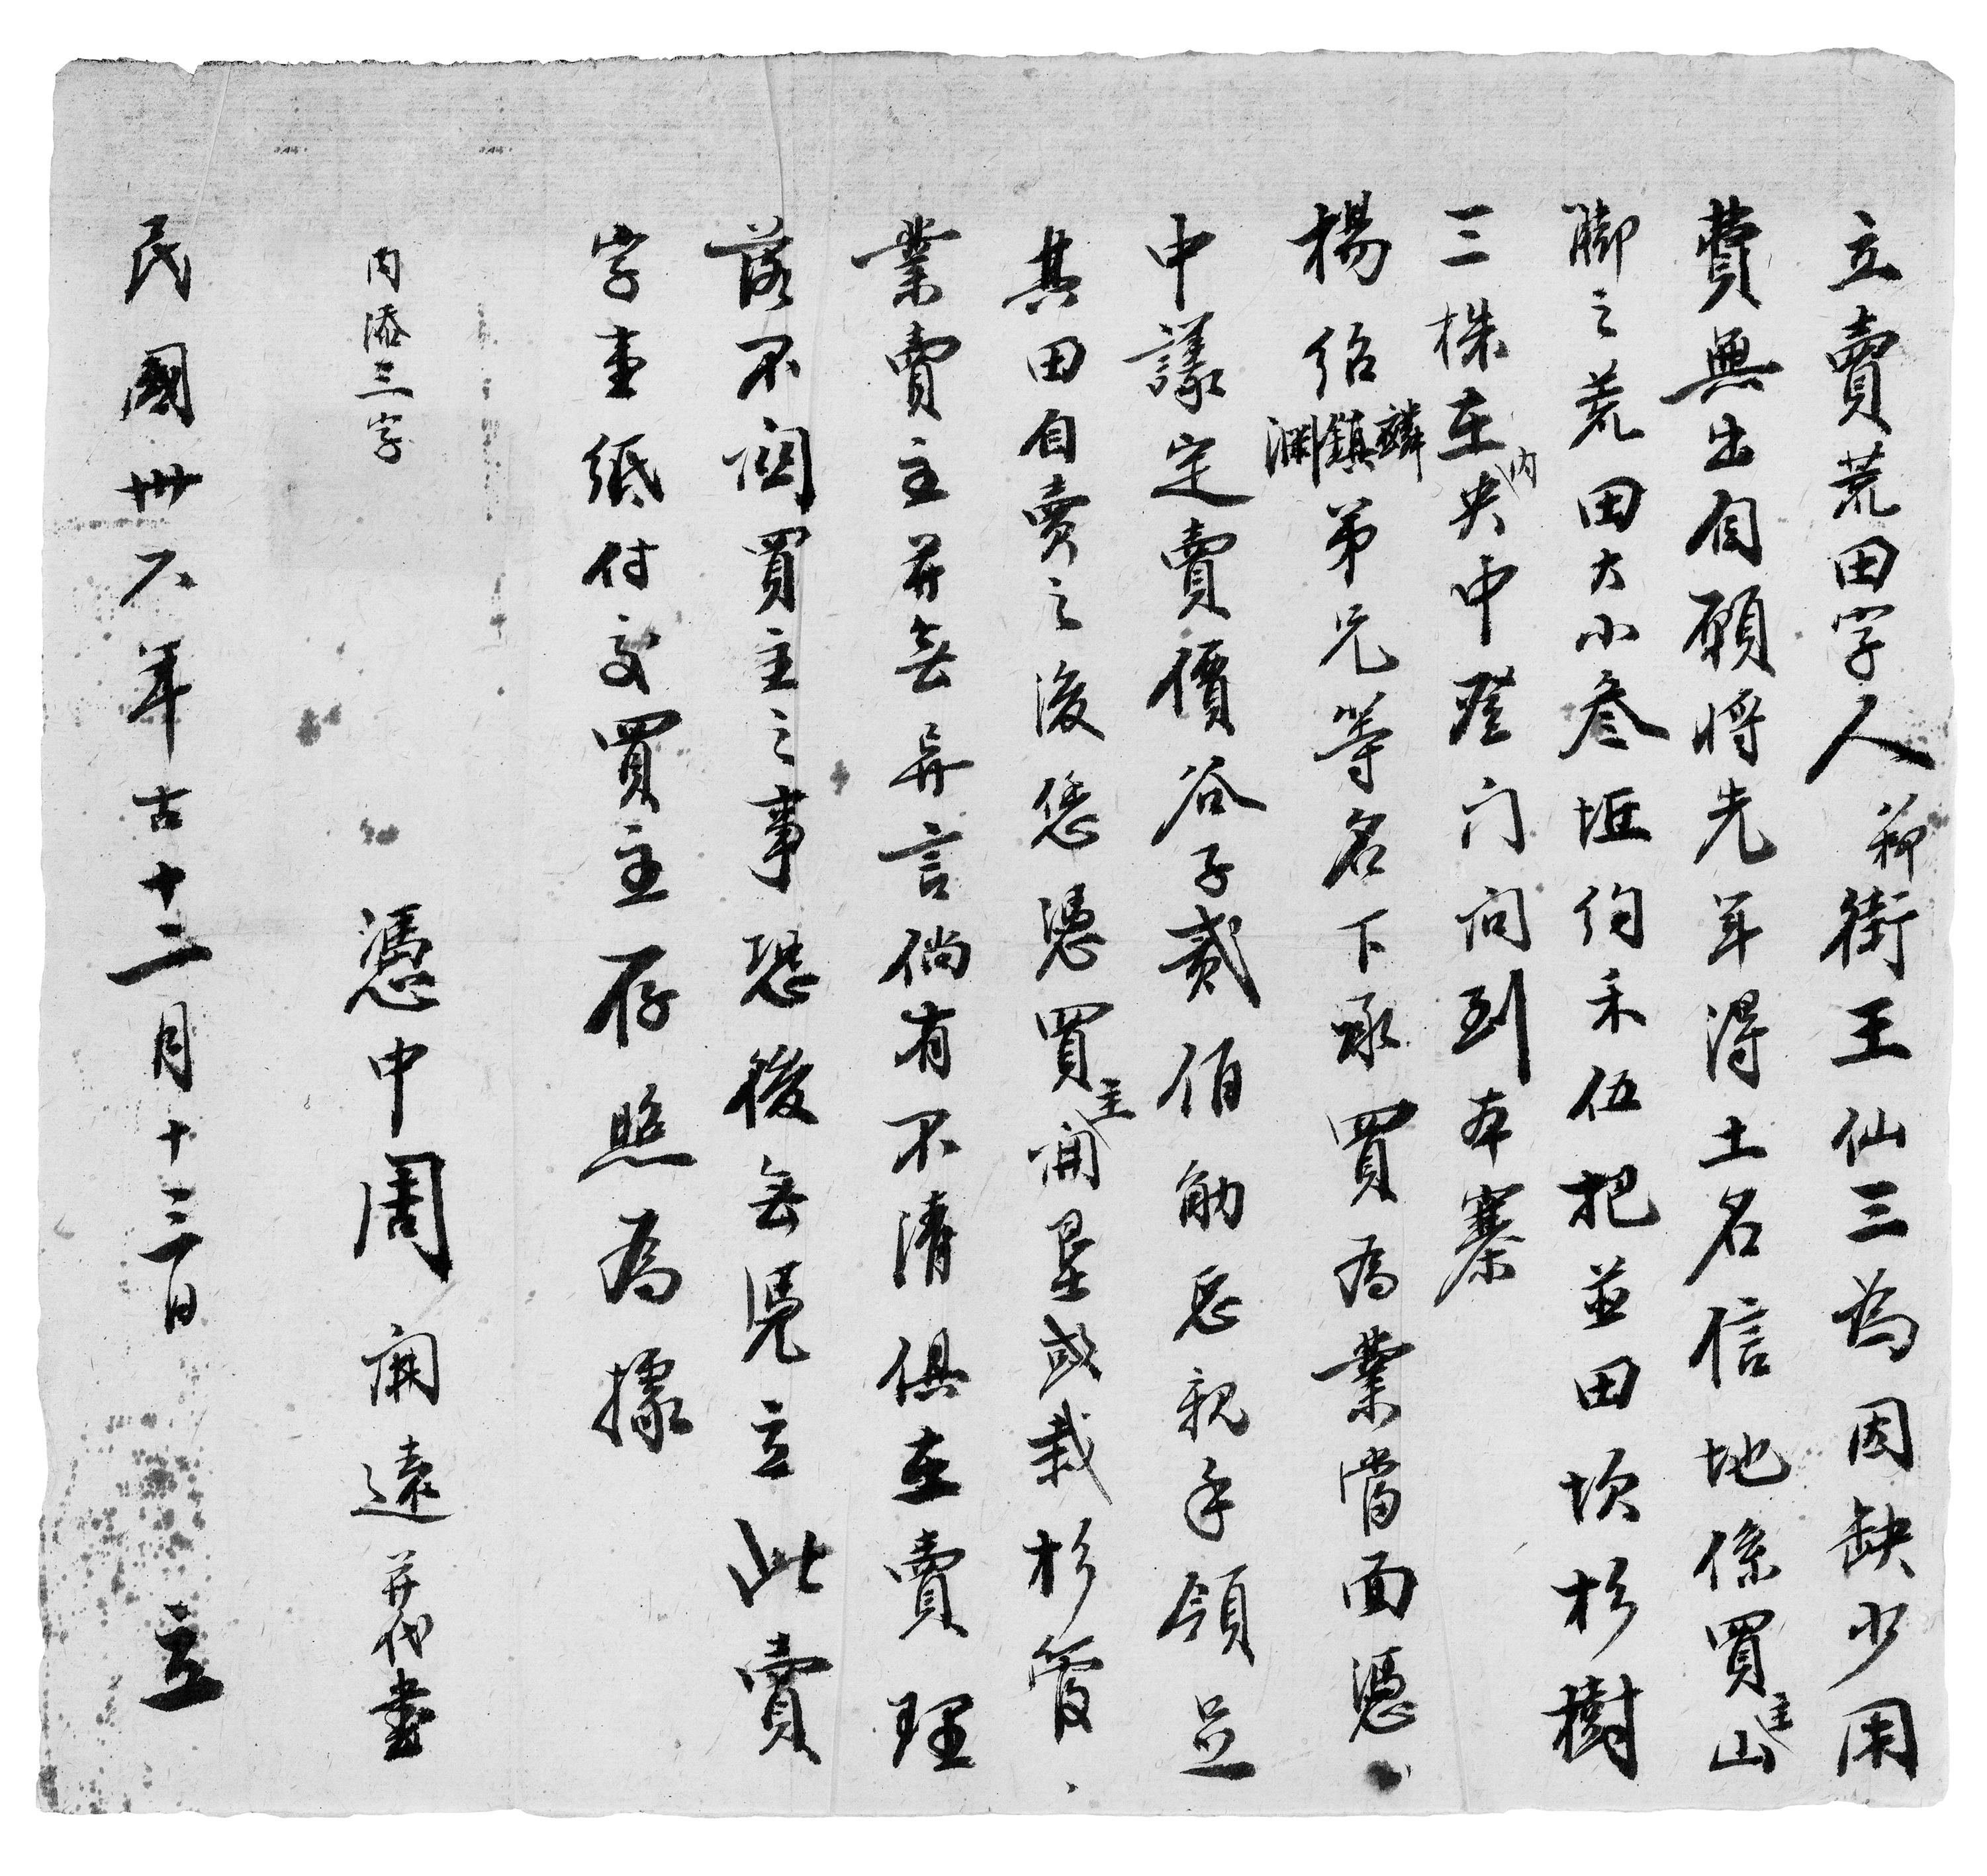 立賣荒田字人柳街王仙三為因缺少用
費無出自願將先年得土名信地係買主山
脚之荒田大小叁坵約禾伍把並田坎杉樹
三株在內央中登门问到本寨
楊紹麟鎮渊弟兄等名下承買為業當面憑
中議定賣價谷子貳佰觔忌親手領足
其田自賣之後恁憑買主開垦或栽杉管
業賣主并無异言倘有不清俱在賣理
落不関買主之事恐後無凭立此賣
字壹紙付交買主存照為據
內添三字
憑中周開遠并代書
民國卅六年古十二月十三日 立